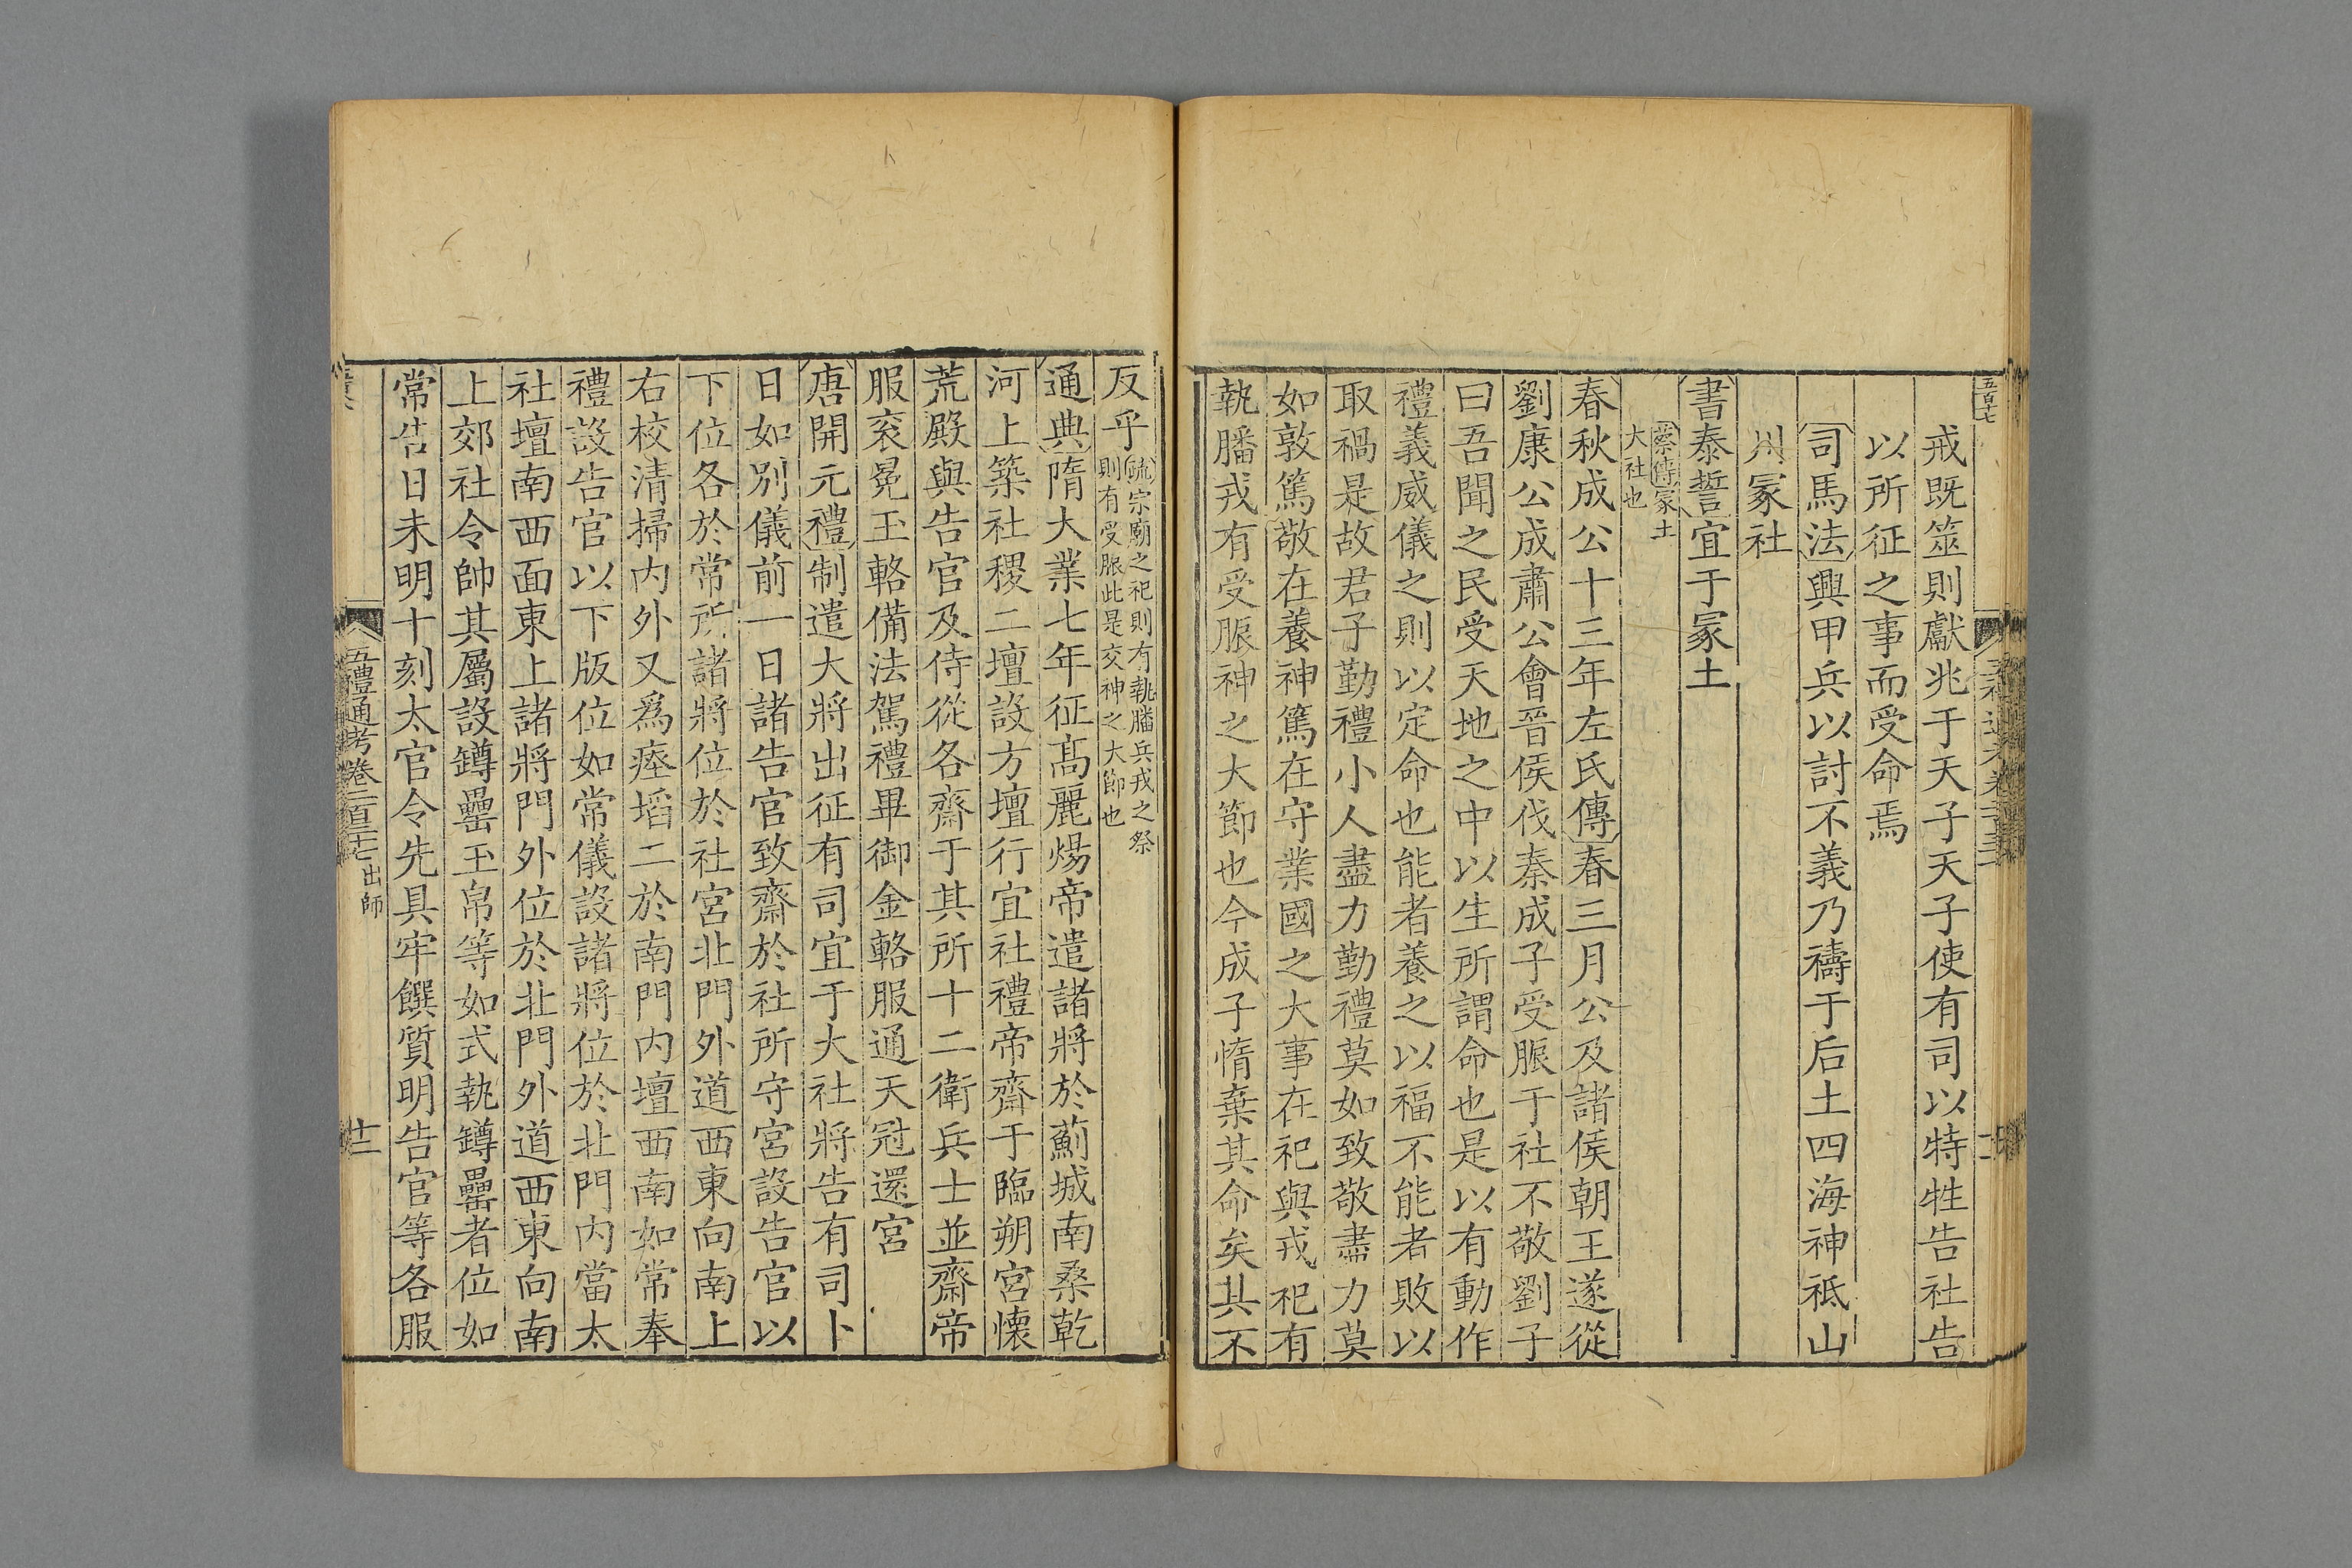 戒既筮則獻兆于天子天子使有司以特牲告社告
以所征之事而受命焉
司馬法興甲兵以討不義乃禱于后土四海神祗山
川冢社
書泰誓宜于冢土
蔡傳冢土
大社也
春秋成公十三年左氏傳春三月公及諸侯朝王遂從
劉康公成肅公會晉侯伐秦成子受脤于社不敬劉子
曰吾聞之民受天地之中以生所謂命也是以有動作
禮義威儀之則以定命也能者養之以福不能者敗以
取禍是故君子勤禮小人盡力勤禮莫如致敬盡力莫
如敦篤敬在養神篤在守業國之大事在祀與戎祀有
執膰戎有受脤神之大節也今成子惰棄其命矣其不
反乎
疏宗廟之祀則有執膰兵戎之祭
則有受脤此是交神之大節也
通典隋大業七年征髙麗煬帝遣諸將於薊城南桑乾
河上築社稷二壇設方壇行宜社禮帝齋于臨朔宮懷
荒殿與告官及侍從各齋于其所十二衛兵士並齋帝
服衮冕玉輅備法駕禮畢御金輅服通天冠還宮
唐開元禮制遣大將出征有司宜于大社將告有司卜
日如別儀前一日諸告官致齋於社所守宮設告官以
下位各於常所諸將位於社宮北門外道西東向南上
右校清掃内外又爲瘞埳二於南門内壇西南如常奉
禮設告官以下版位如常儀設諸將位於北門内當太
社壇南西面東上諸將門外位於北門外道西東向南
上郊社令帥其屬設罇罍玉帛等如式執罇罍者位如
常告日未明十刻太官令先具牢饌質明告官等各服
五禮通考卷二百三十七 出師
十二